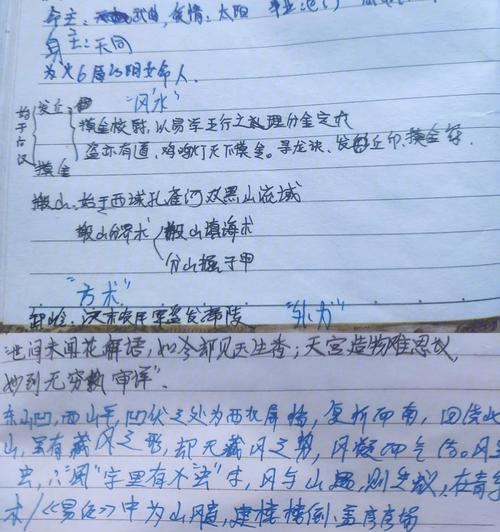 命主：武曲，爱情：太阳
身主：天同
为火6局的阴女命人．
始于后汉
发丘 印 "风水"
摸金校尉，以易学五行之数理分金定穴
盗亦有道，鸡鸣灯灭不摸金。寻龙诀、发丘印、摸金符．
摸金
搬山：始于西域孔雀河双黑山流域
搬山分甲术 搬山填海术
分山掘子甲
"方术"
卸岭：汉末农民军盗发帝陵 "外力"
世间未闻花解语，如今却见玉生香；天宫造物难思议，
妙到无穷孰审详"．
东山凹，西山平，凹伏之处为西北屏幛，复折而南，回绕此
山，虽有藏风之形，却无藏风之势，风凝而气
虫，风"字里有个虫"字，风与山遇，则生蛊，在青
术/《易经》中为山风蛊，